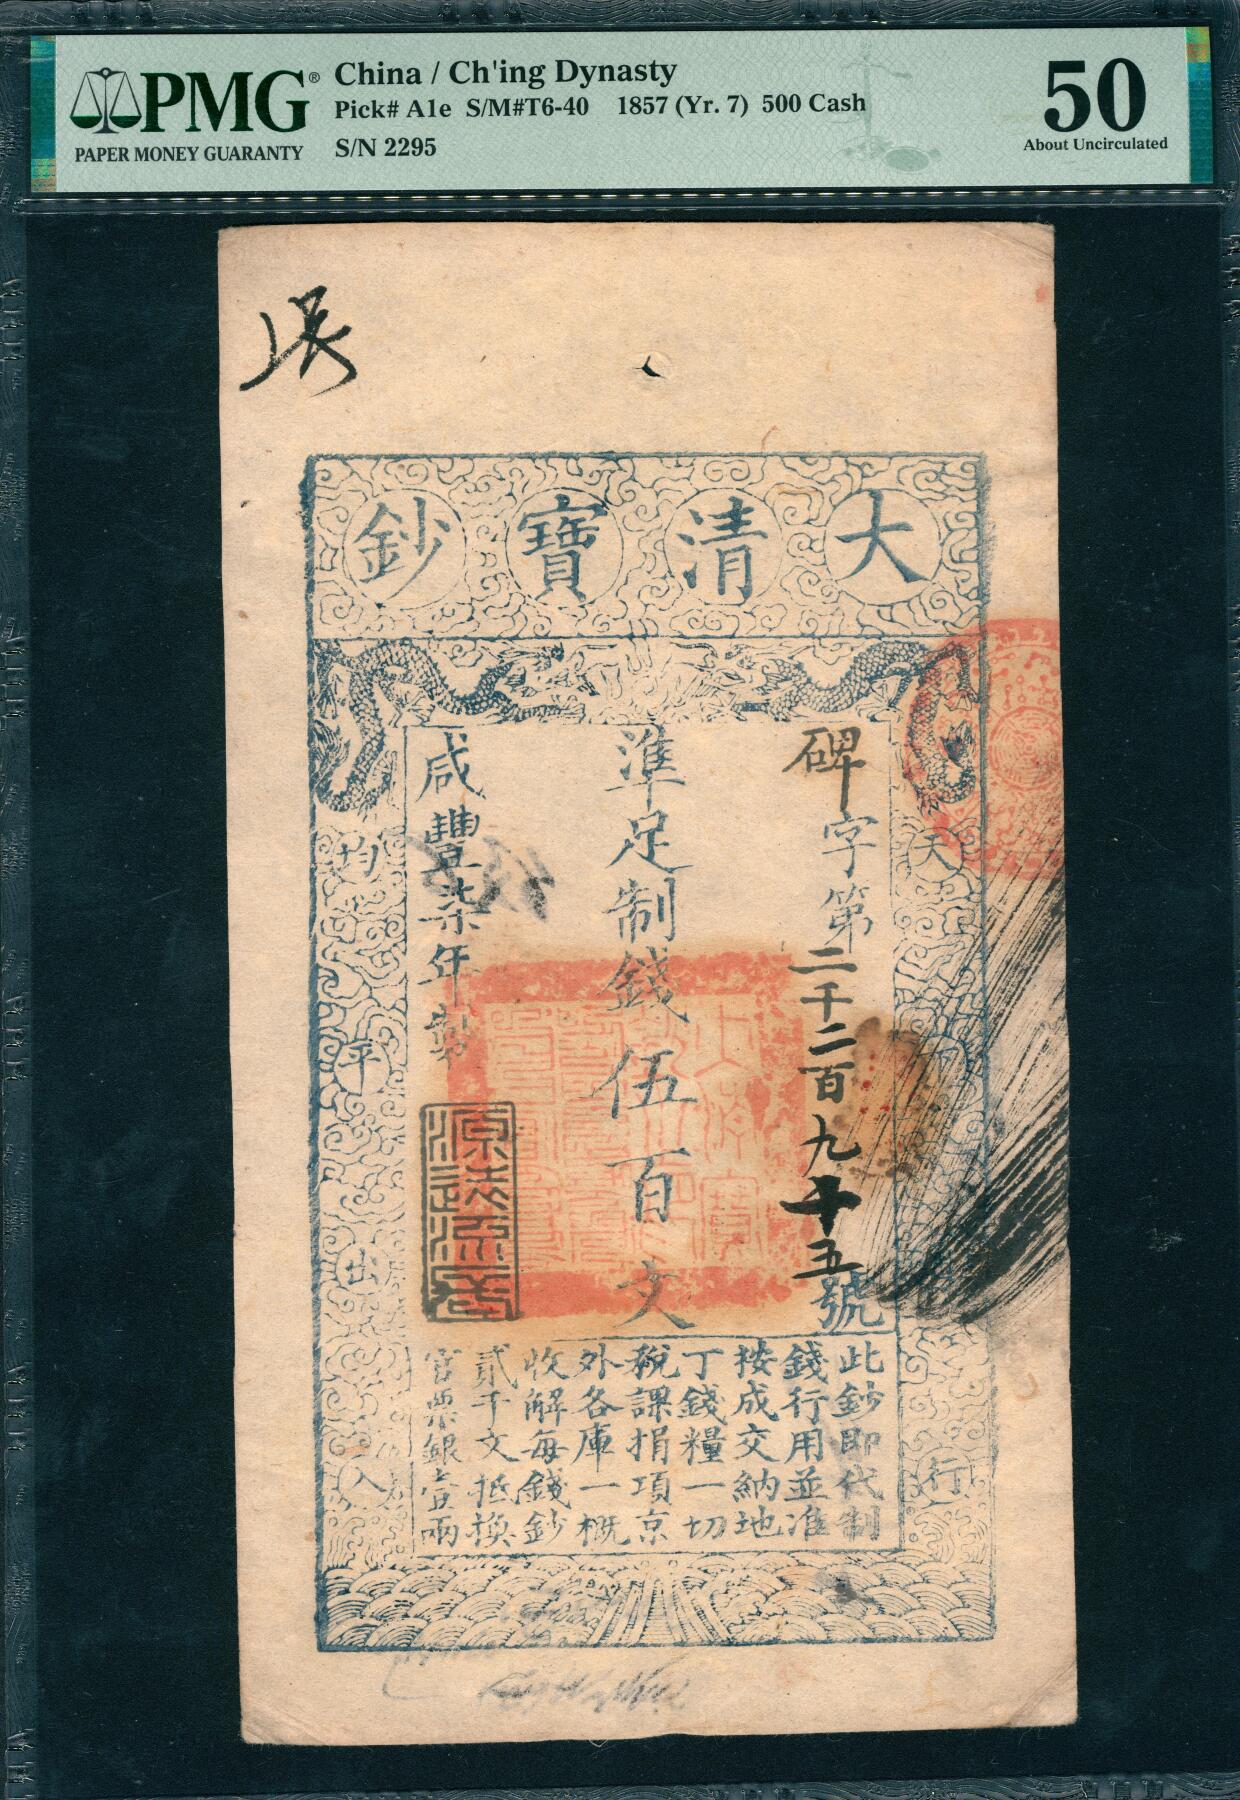 PMG®
PAPER MONEY GUARANTY
China / Ch'ing Dynasty
Pick# A1e S/M#T6-40 1857 (Yr. 7) 500 Cash
S/N 2295
50
About Uncirculated
大清寶鈔
碑字第二千二百九十五號
準足制錢伍百文
咸豐柒年製
天
行
均
平
出
入
此鈔即代制
錢行用並准
按成交納地
丁錢糧一切
稅課捐項京
外各庫一概
收解每錢鈔
貳千文抵換
官票銀壹兩